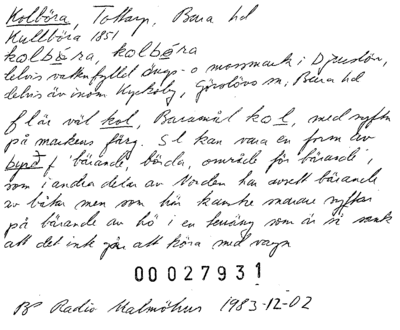 Kolböra, Tottarp, Bara hd
Kullböra 1851
kolböra, kolbéra
delvis vattenfylld ängs- o mossmark i Djurslöv,
delvis äv inom Kyrkoby, Görslövs sn, Bara hd
f l är väl kol, Baramål kol, med syftn
på markens färg. S l kan vara en form av
f 'bärande, börda, område för bärande',
som i andra delar av Norden har avsett bärande
av båtar men som här kanske snarare syftar
på bärande av hö i en terräng som är så sank
att det inte går att köra med vagn
00027931
BP Radio Malmöhus 1983-12-02